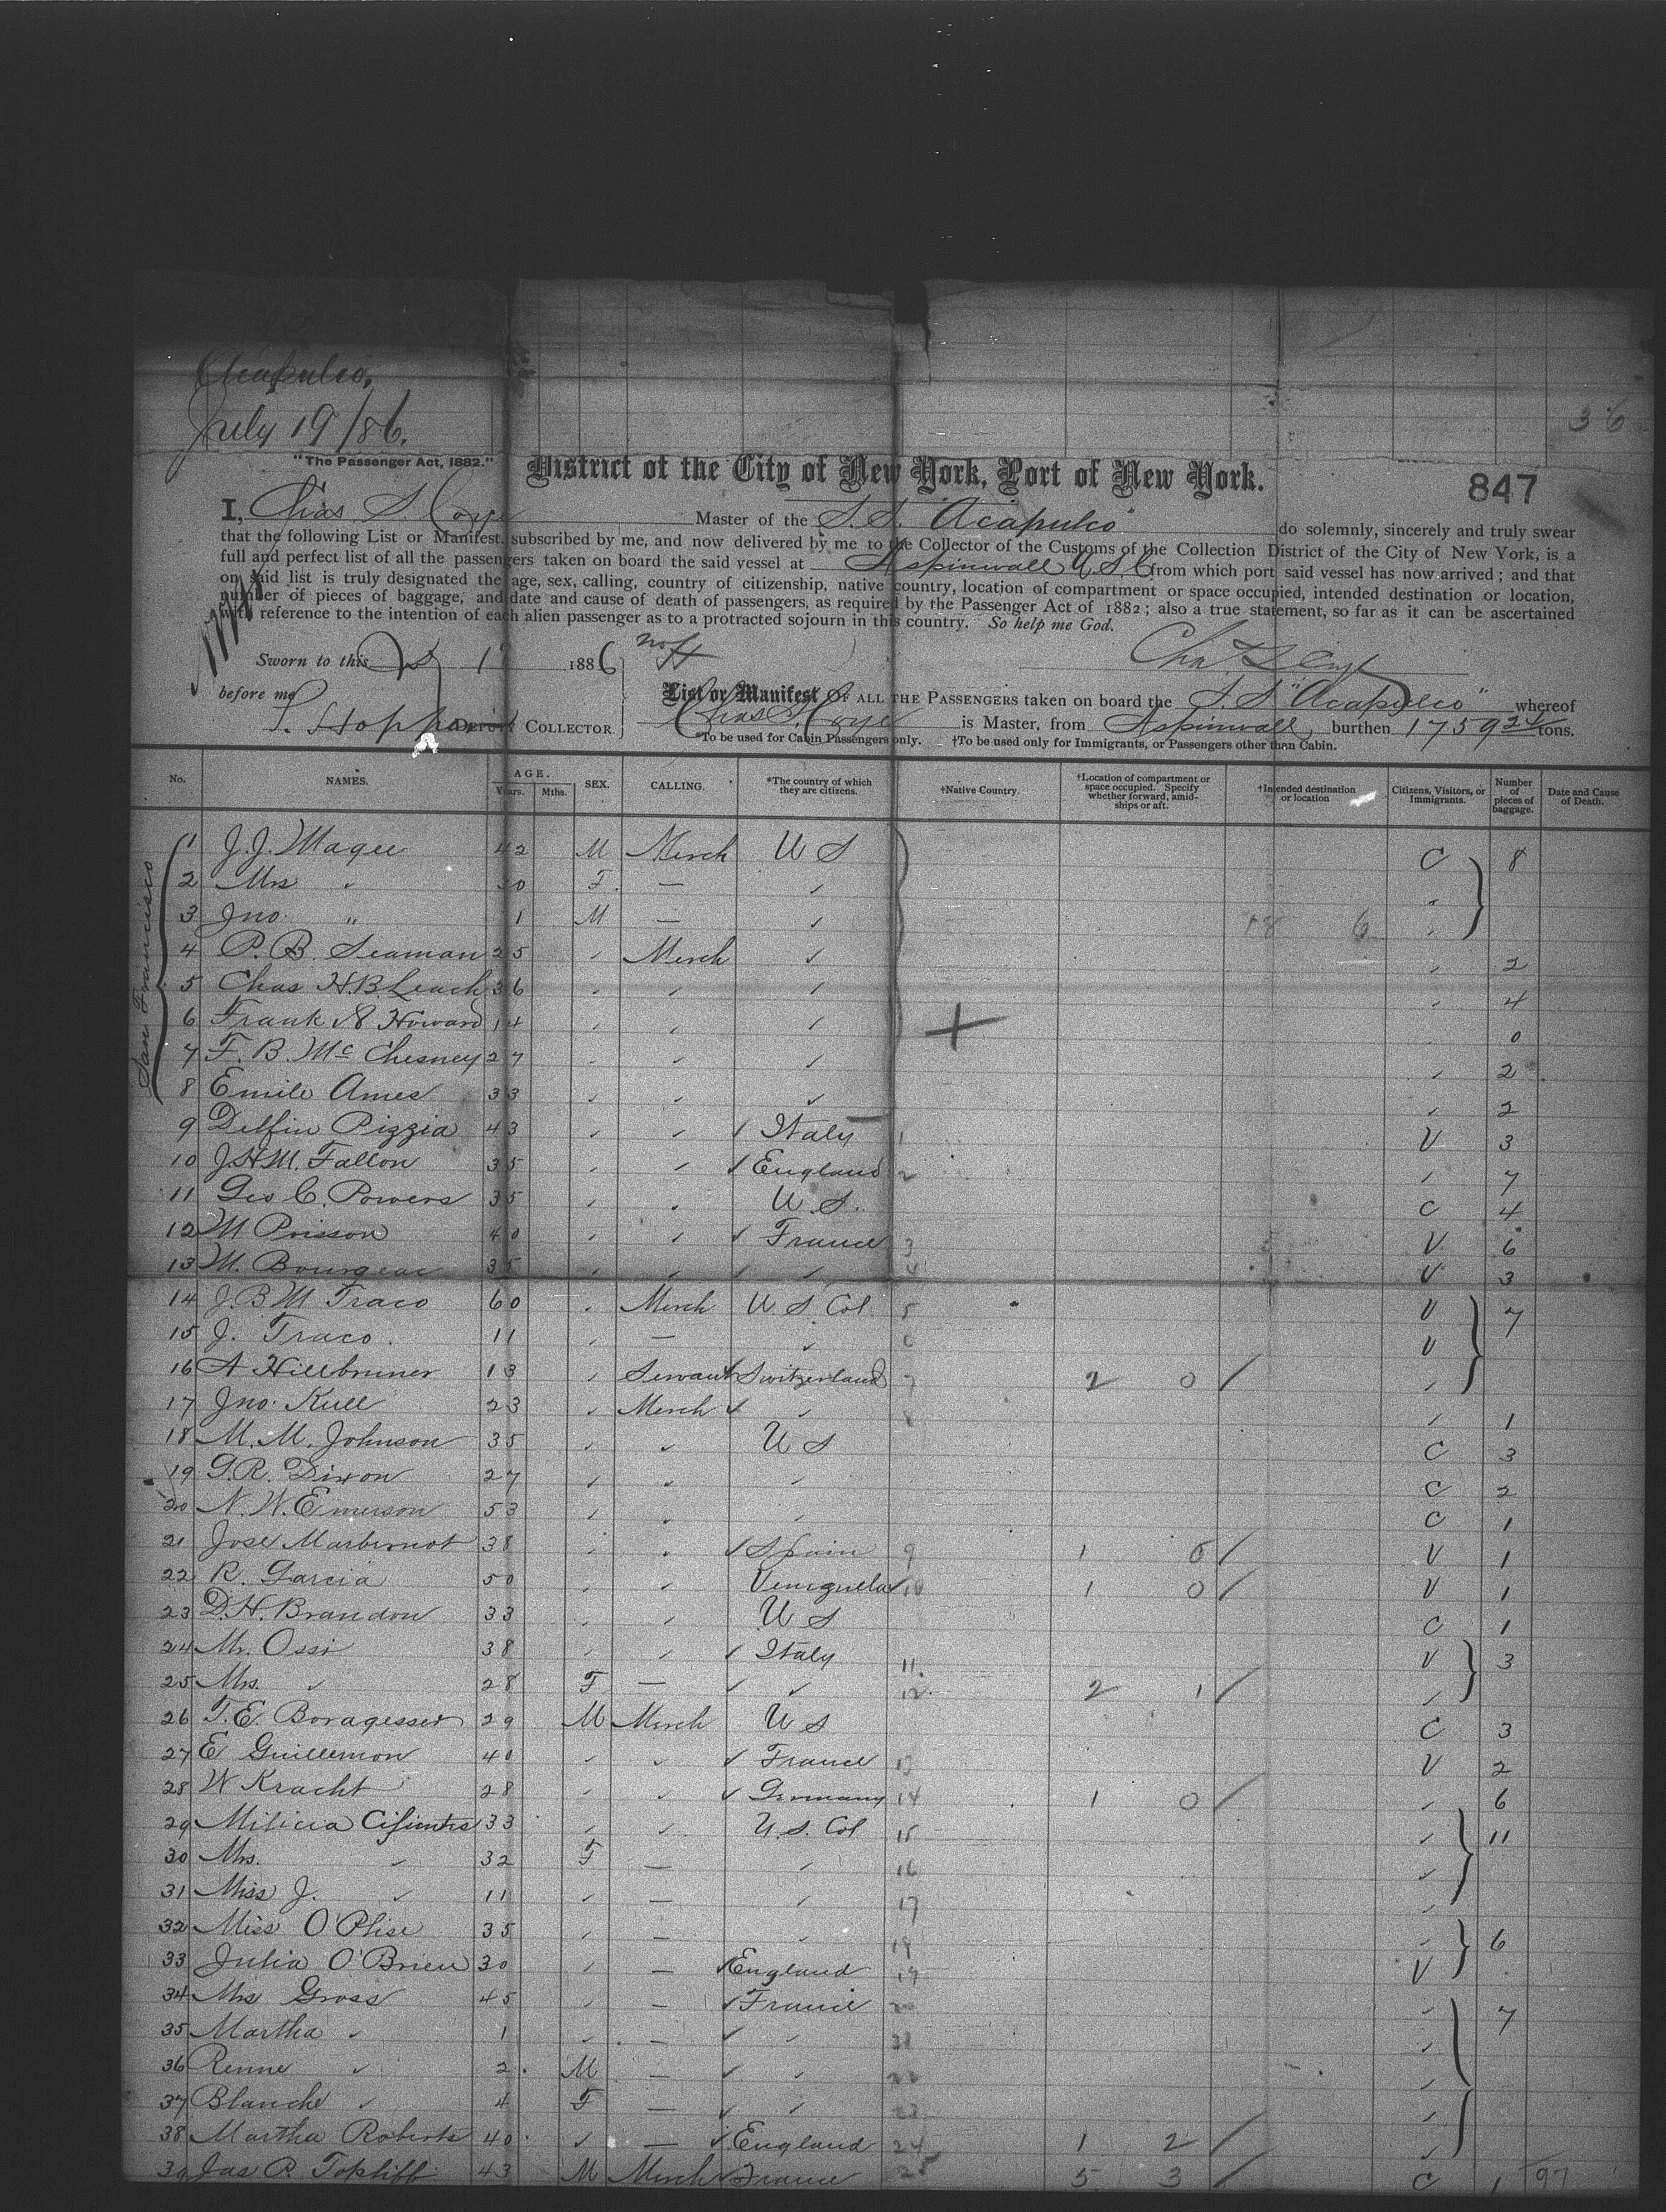 Acapulco,
July 19/86.
36
"The Passenger Act, 1882."
District of the City of New York, Port of New York.
847
I, Chas. S. Coye Master of the S.S. "Acapulco" do solemnly, sincerely and truly swear
that the following List or Manifest, subscribed by me, and now delivered by me to the Collector of the Customs of the Collection District of the City of New York, is a
full and perfect list of all the passengers taken on board the said vessel at Aspinwall U.S.C from which port said vessel has now arrived; and that
on said list is truly designated the age, sex, calling, country of citizenship, native country, location of compartment or space occupied, intended destination or location,
number of pieces of baggage, and date and cause of death of passengers, as required by the Passenger Act of 1882; also a true statement, so far as it can be ascertained
with reference to the intention of each alien passenger as to a protracted sojourn in this country. So help me God.
Sworn to this 19 1886
before me
Deputy Collector.
List or Manifest of all the Passengers taken on board the S.S "Acapulco" whereof
Chas S. Coye is Master, from Aspinwall, burthen 1759 24/ tons.
*To be used for Cabin Passengers only. †To be used only for Immigrants, or Passengers other than Cabin.
No. NAMES. AGE. Years. Mths. SEX. CALLING. *The country of which they are citizens. †Native Country. †Location of compartment or space occupied. Specify whether forward, amidships or aft. †Intended destination or location Citizens, Visitors, or Immigrants. Number of pieces of baggage. Date and Cause of Death.
San Francisco
1 J.J. Magee 42 M Merch U S C 8
2 Mrs " 30 F — ✓ "
3 Jno. " 1 M — ✓ 6 "
4 P. B. Seaman 25 ✓ Merch ✓ ✓ 2
5 Chas H.B. Leach 36 ✓ ✓ ✓ ✓ 4
6 Frank N Howard 14 ✓ ✓ ✓ ✓ 0
7 F. B. McChesney 27 ✓ ✓ ✓ ✓ 2
8 Emile Ames 33 ✓ ✓ ✓ ✓ 2
9 Delfin Pizzia 43 ✓ ✓ ✓ Italy 1 V 3
10 J.H.M. Fallon 35 ✓ ✓ ✓ England 2 ✓ 7
11 Geo C. Powers 35 ✓ ✓ U.S. C 4
12 M Poisson 40 ✓ ✓ ✓ France 3 V 6
13 M. Bourgeac 35 ✓ ✓ ✓ ✓ 4 V 3
14 J.B M Traco 60 ✓ Merch U S Col. 5 V 7
15 J. Traco. 11 ✓ — ✓ 6 V
16 A Hillbruner 13 ✓ Servant ✓ Switzerland 7 2 0 / ✓
17 Jno. Kull 23 ✓ Merch ✓ ✓ 8 ✓ 1
18 M.M. Johnson 35 ✓ ✓ U S C 3
19 G.R. Dixon 27 ✓ ✓ ✓ C 2
20 N.W. Emerson 53 ✓ ✓ ✓ C 1
21 Jose Marbernot 38 ✓ ✓ ✓ Spain 9 1 0 / V 1
22 R. Garcia 50 ✓ ✓ Venezuela ✓ 10 1 0 / V 1
23 D.H. Brandon 33 ✓ ✓ U S C 1
24 Mr. Ossi 38 ✓ ✓ ✓ Italy 11. V 3
25 Mrs. ✓ 28 F — ✓ ✓ 12. 2 1 / ✓
26 T.E. Boragesser 29 M Merch U S C 3
27 E Guillemon 40 ✓ ✓ ✓ France 13 V 2
28 W Kracht 28 ✓ ✓ ✓ Germany 14 1 0 / ✓ 6
29 Milicia Cifuentes 33 ✓ ✓ U.S. Col 15 ✓ 11
30 Mrs. ✓ 32 F — ✓ 16 ✓
31 Miss J. ✓ 11 ✓ — ✓ 17 ✓
32 Miss O'Plise 35 ✓ — ✓ 18 ✓ 6
33 Julia O'Brien 30 ✓ — ✓ England 19 V
34 Mrs Gross 45 ✓ — ✓ France 20 ✓ 7
35 Martha ✓ 1 ✓ — ✓ ✓ 21 ✓
36 Renne ✓ 2 M — ✓ ✓ 22 ✓
37 Blanche ✓ 4 F — ✓ ✓ 23 ✓
38 Martha Roberts 40 ✓ — ✓ England 24 1 2 / ✓
39 Jas P. Topliff 43 M Merch ✓ France 25 5 3 / C 1 97